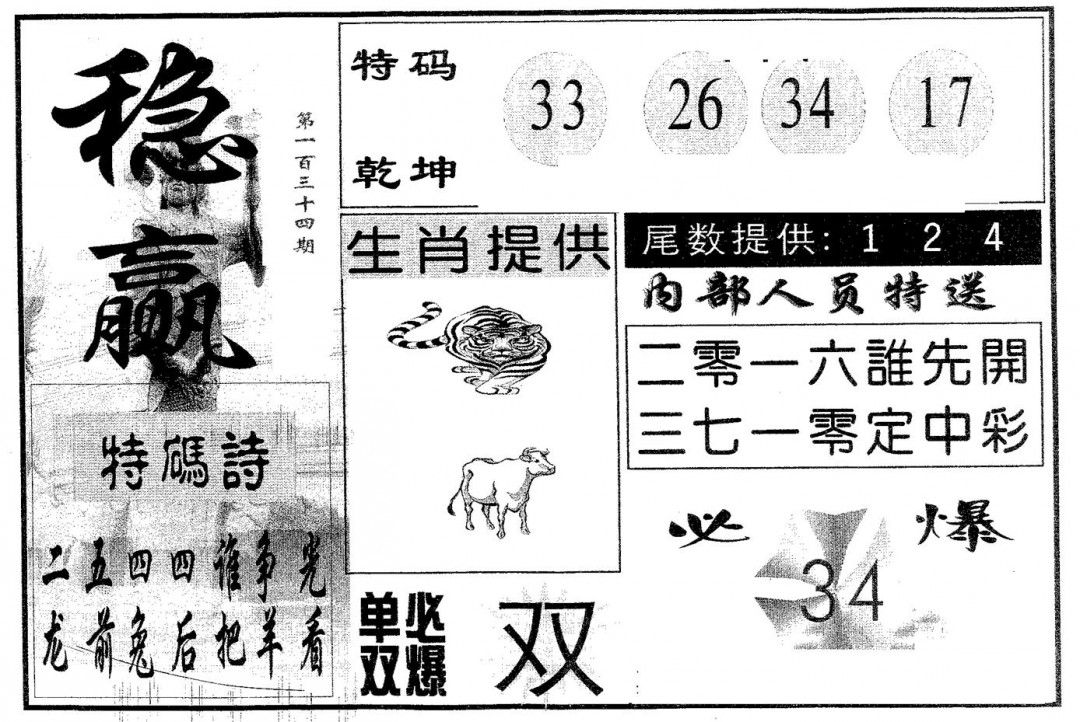 稳赢
第一百三十四期
特码诗
二五四四谁争先
龙前兔后把羊看
特码
乾坤
33 26 34 17
生肖提供
单双
必爆
双
尾数提供: 1 2 4
内部人员特送
二零一六誰先開
三七一零定中彩
必爆
34